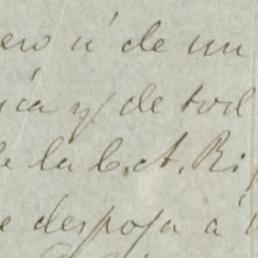 ero ú de un
ica y de tod
e la C. A. Ri
e despoja á